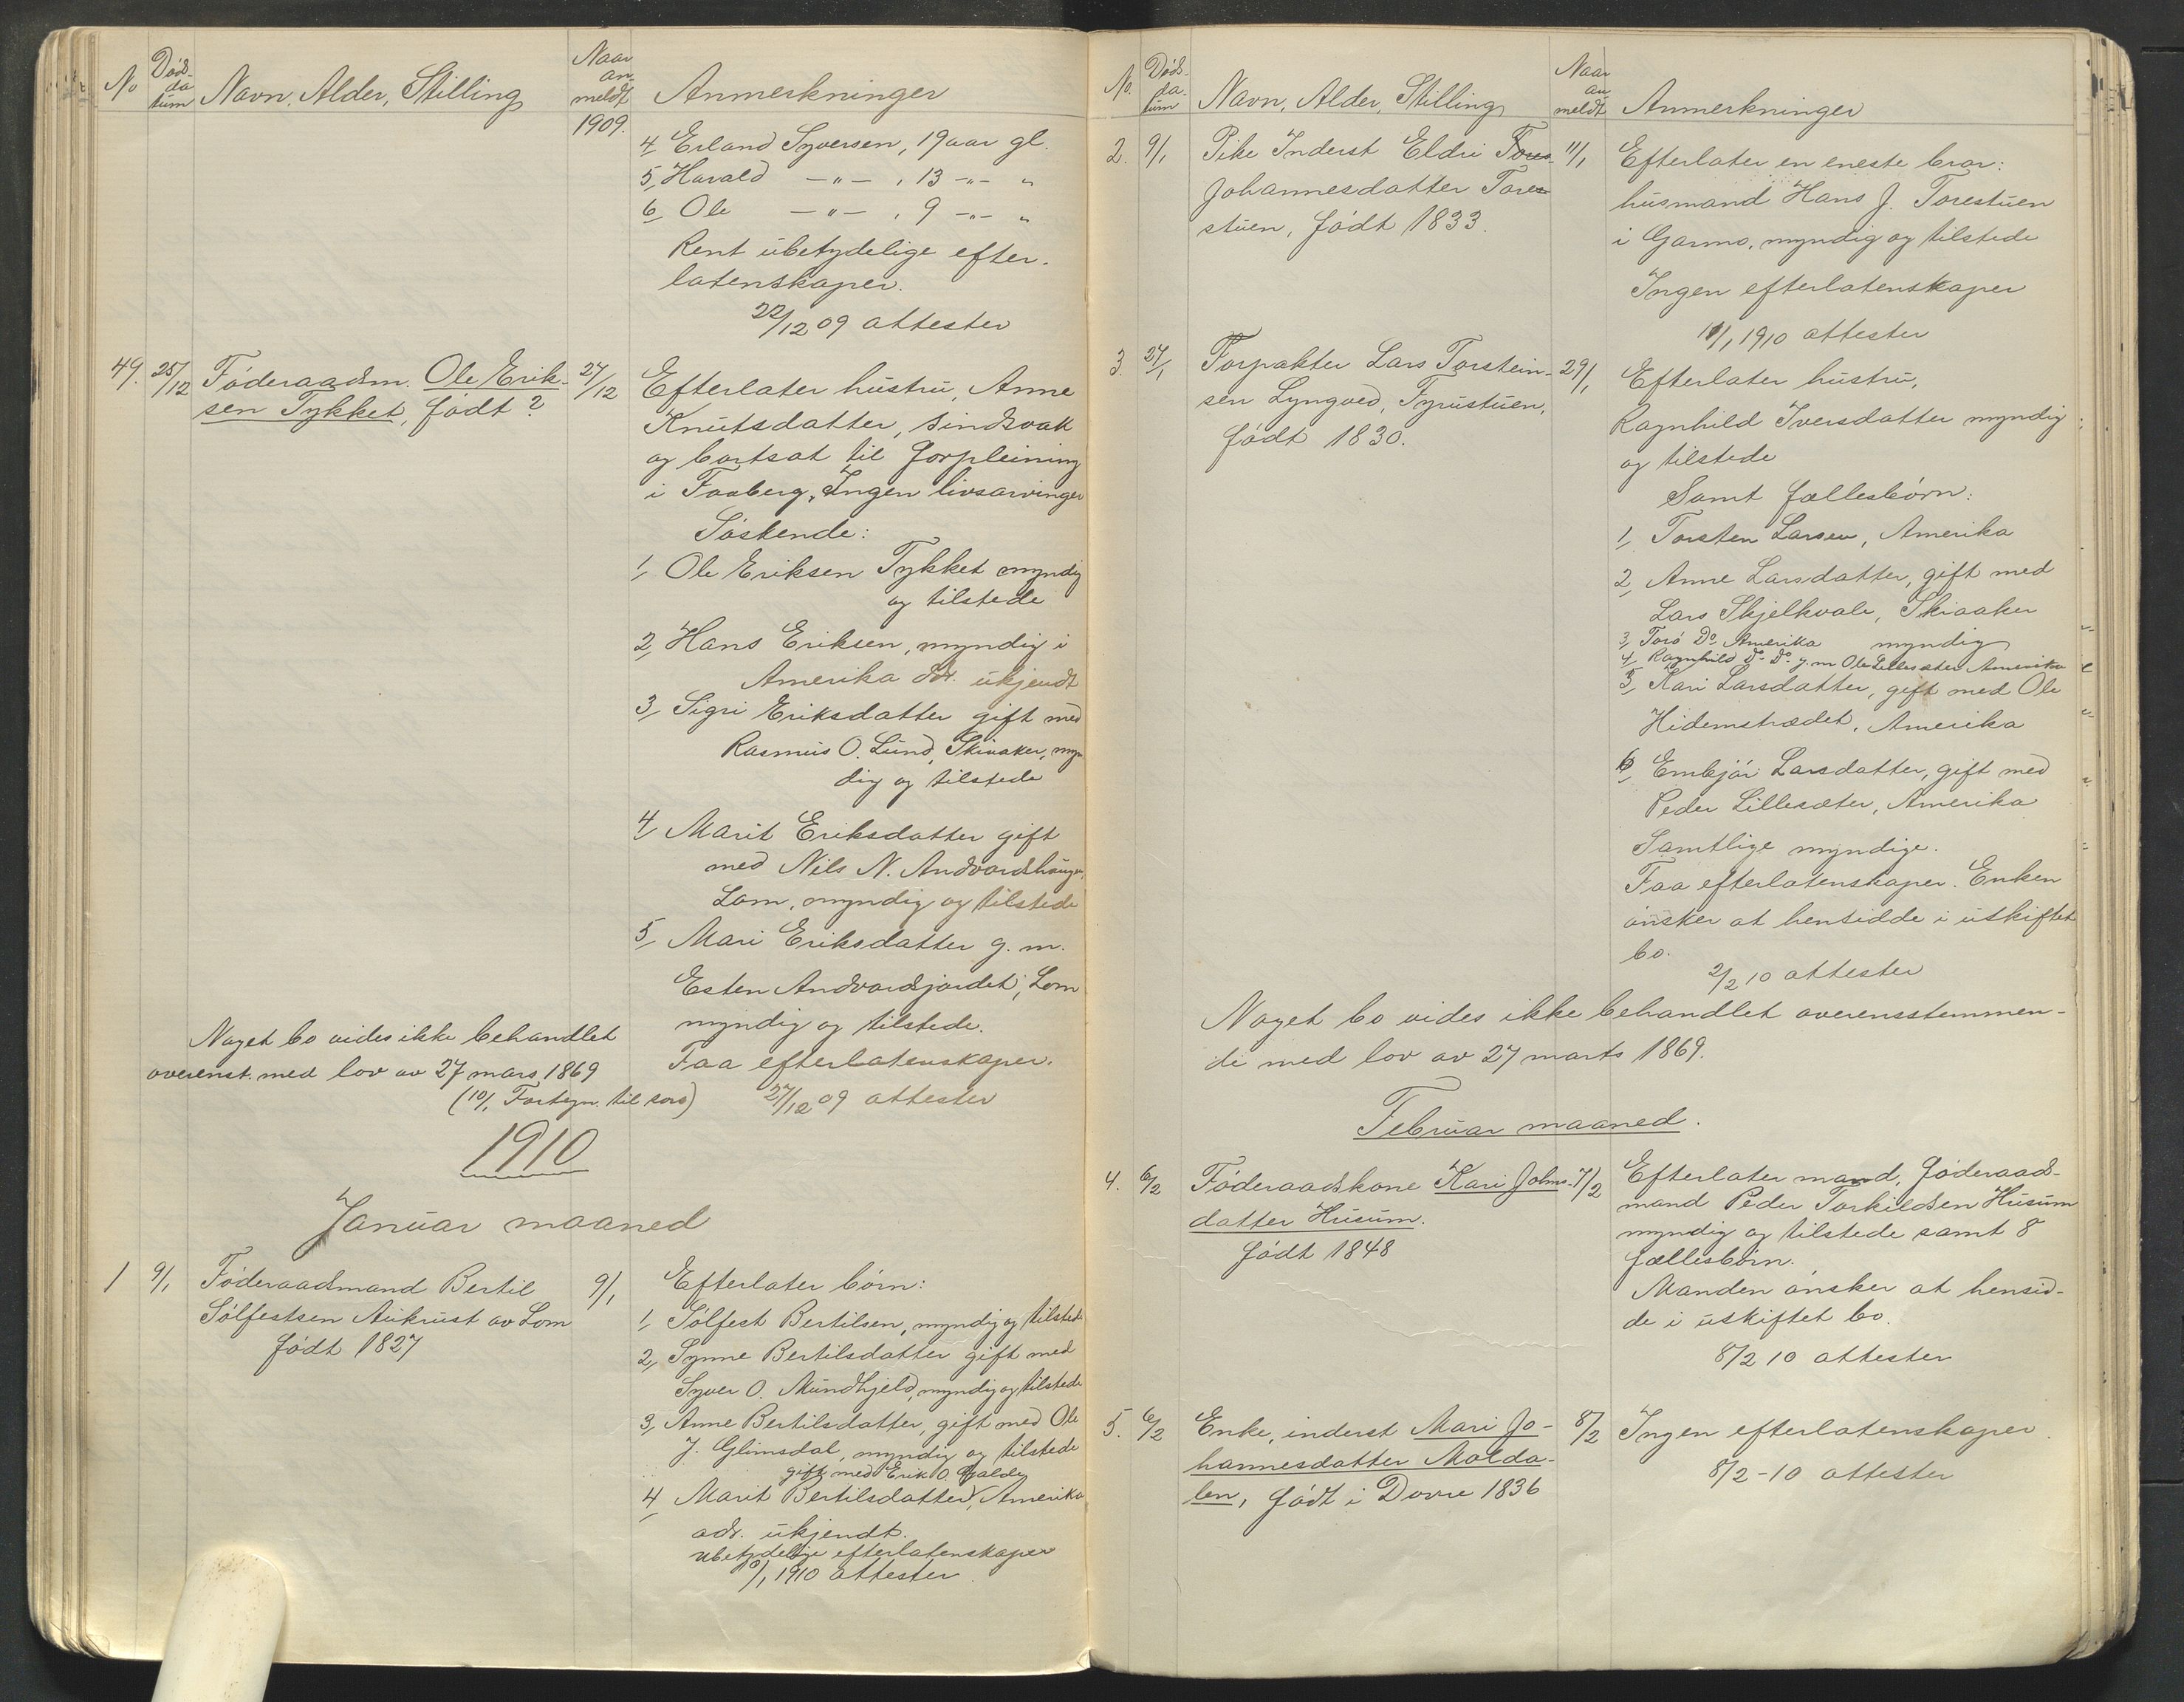 No Døds- da tum Navn, Alder, Stilling Naar an- meldt Anmerkninger
1909.
4, Erland Syversen, 19 aar gl.
5, Harald —„— , 13 —„— „
6, Ole —„— , 9 —„— „
Rent ubetydelige efter-
latenskaper.
22/12 09 attester
49. 25/12 Føderaadsm. Ole Erik- 27/12
sen Tykket, født ?
Efterlater hustru, Anne
Knutsdatter, sindsvak
og bortsat til forpleining
i Faaberg. Ingen livsarvinger
Søskende:
1, Ole Eriksen Tykket myndig
og tilstede
2, Hans Eriksen, myndig i
Amerika adr. ukjendt
3, Sigri Eriksdatter gift med
Rasmus O. Lund, Skiaaker, myn
dig og tilstede
4, Marit Eriksdatter gift
med Nils N. Andvordshaugen,
Lom, myndig og tilstede
5, Mari Eriksdatter g. m.
Esten Andvordsjordet, Lom
myndig og tilstede.
Faa efterlatenskaper.
27/12 09 attester
Noget bo vides ikke behandlet
overenst. med lov av 27 mars 1869
(10/1 Fortegn. til sors)
1910
Januar maaned
1 9/1 Føderaadsmand Bertil 9/1
Sølfestsen Aukrust av Lom
født 1827
Efterlater børn:
1, Sølfest Bertilsen, myndig og tilstede
2, Synne Bertilsdatter gift med
Syver O. Mundhjeld, myndig og tilstede
3, Anne Bertilsdatter, gift med Ole
J. Glimsdal, myndig og tilstede
gift med Erik O. Galde
4, Marit Bertilsdatter, Amerika
adr. ukjendt.
ubetydelige efterlatenskaper
10/1 1910 attester
No. Døds- da- tum Navn, Alder, Stilling Naar an meldt Anmerkninger
2. 9/1 Pike Inderst Eldri Tores- 11/1
Johannesdatter Tore
stuen, født 1833.
Efterlater en eneste bror:
husmand Hans J. Torestuen
i Garmo, myndig og tilstede
Ingen efterlatenskaper
11/1 1910 attester
3. 27/1 Forpakter Lars Torstein- 29/1
sen Lyngved, Fyrustuen,
født 1830.
Efterlater hustru,
Ragnhild Iversdatter myndig
og tilstede
Samt fællesbørn:
1, Torsten Larsen, Amerika
2, Anne Larsdatter, gift med
Lars Skjelkvale, Skiaaker
myndig
3, Torø Do. Amerika
4, Ragnhild Do. Do. g. m Ole Lillesæter Amerika
5, Kari Larsdatter, gift med Ole
Hidemstrædet, Amerika
6, Embjør Larsdatter, gift med
Peder Lillesæter, Amerika
Samtlige myndige.
Faa efterlatenskaper. Enken
ønsker at hensidde i uskiftet
bo.
2/2 10 attester
Noget bo vides ikke behandlet overensstemmen-
de med lov av 27 marts 1869.
Februar maaned.
4. 6/2 Føderaadskone Kari Johns- 7/2
datter Husum.
født 1848
Efterlater mand, føderaads-
mand Peder Torkildsen Husum
myndig og tilstede samt 8
fællesbørn.
Manden ønsker at hensid-
de i uskiftet bo.
8/2 10 attester
5. 6/2 Enke, inderst Mari Jo- 8/2
hannesdatter Molda-
len, født i Dovre 1836
Ingen efterlatenskaper.
8/2 - 10 attester